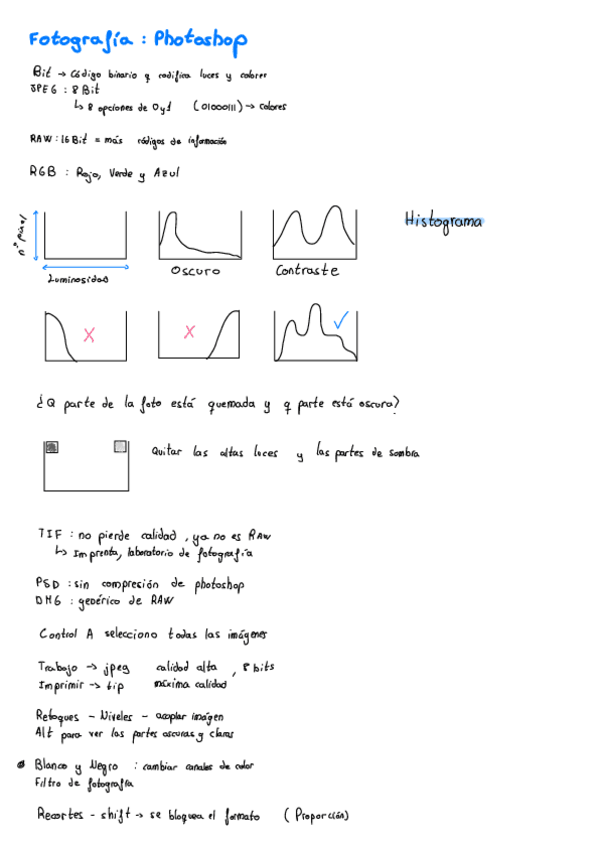 Fotografía : Photoshop
Bit → Código binario q codifica luces y colores
JPEG : 8 Bit
↳ 8 opciones de 0 y 1 (01000111) → colores
RAW : 16 Bit = más códigos de información
RGB : Rojo, Verde y Azul
Histograma
nº pixel
Luminosidad
Oscuro
Contraste
X
X
✓
¿Q parte de la foto está quemada y q parte está oscura?
Quitar las altas luces y las partes de sombra
TIF : no pierde calidad, ya no es RAW
↳ Imprenta, laboratorio de fotografía
PSD : sin compresión de photoshop
: genérico de RAW
Control A selecciono todas las imágenes
Trabajo → jpeg calidad alta, 8 bits
Imprimir → tip máxima calidad
Retoques - Niveles - acoplar imágen
Alt para ver las partes oscuras y claras
Blanco y Negro : cambiar canales de color
Filtro de fotografía
Recortes - shift → se bloquea el formato (Proporción)